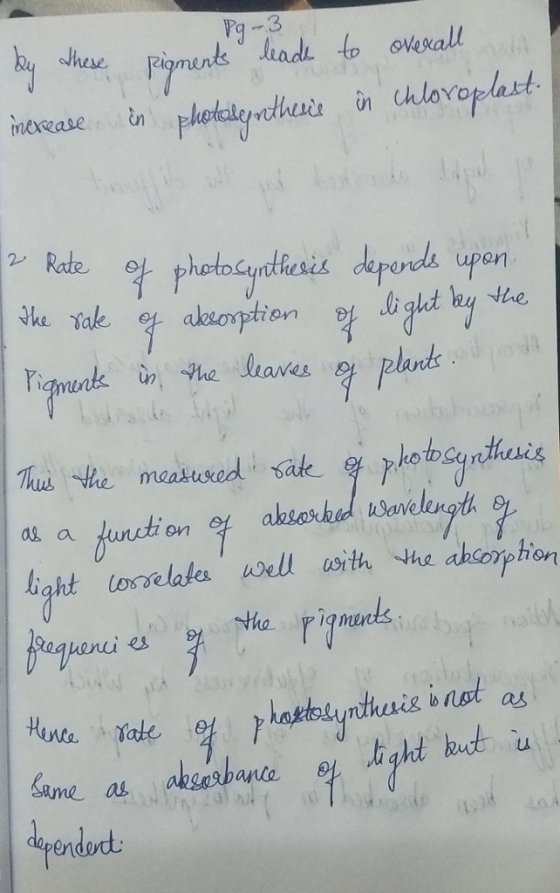 Pg-3
by these pigments leads to overall
increase in photosynthesis in chloroplast.
2. Rate of photosynthesis depends upon
the rate of absorption of light by the
Pigments in the leaves of plants.
Thus the measured rate of photosynthesis
as a function of absorbed wavelength of
light correlates well with the absorption
frequencies of the pigments.
Hence rate of photosynthesis is not as
same as absorbance of light but is
dependent.